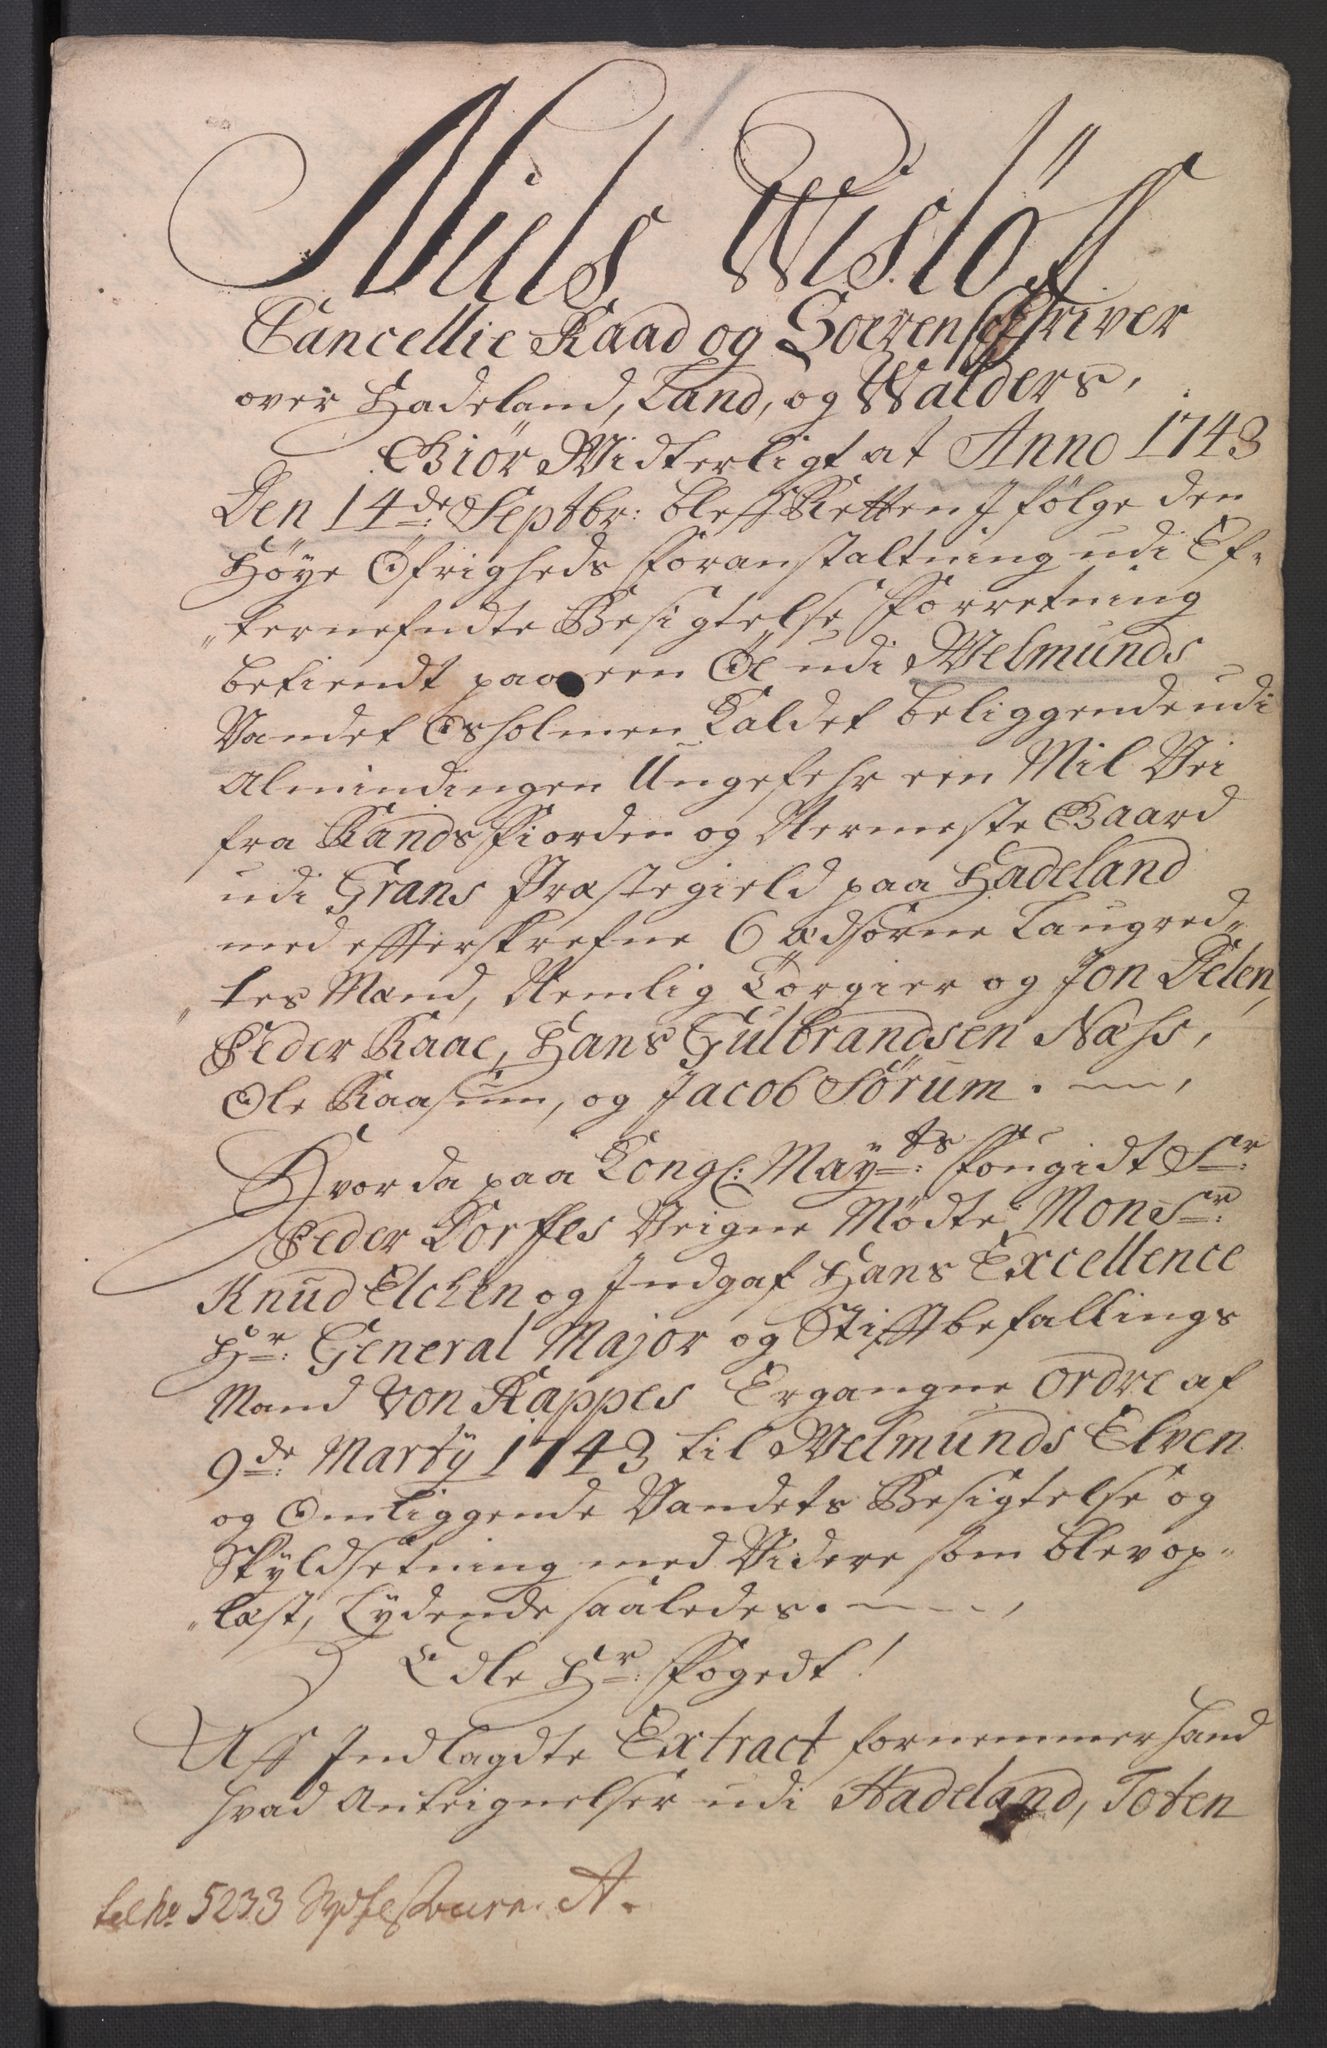 Niels Wislöff
Cancellie Raad og Soerenschriver
over Hadeland, Land, og Walders,
Giör Vidterligt at Anno 1743
Den 14de: Septbr: bleff Retten J følge den
Höye Øfrigheds foranstaltning udi Ef-
„ternefndte Besigtelse Forretning
betiendt paa een Öe udi Velmunds
Vandet Osholmen Kaldet beliggende udi
Almindingen Ungefehr een Mil Vei
fra Rands Fiorden og Nermeste Gaard
udi Grans Præstegield paa Hadeland
med efterskrefne 6 ædsorne Laugred-
„tes Mænd, Nemlig Torgier og Jon Delen,
Peder Raae, Hans Gulbrandsen Næhs,
Ole Raasum, og Jacob Sørum.
Hvor da paa Kongl: Mayts: Fougidt Sr:
Peder Korffes Veigne Mödte Monsr:
Knud Elchen og Indgaf Hans Excellence
Hr: General Major og Stiftbefallings
Mand Von Rappes Ergangne Ordre af
9de: Martÿ 1743 til Velmunds Elven
og Omliggende Vandets Besigtelse og
Skyldsetning med Videre som blev op-
„læst, Lydende saaledes.
Edle Hr: Fogedt!
Aff Indlagdte Extract fornemmer hand
hvad Anteignelser udi Hadeland, Toten
5233 A.